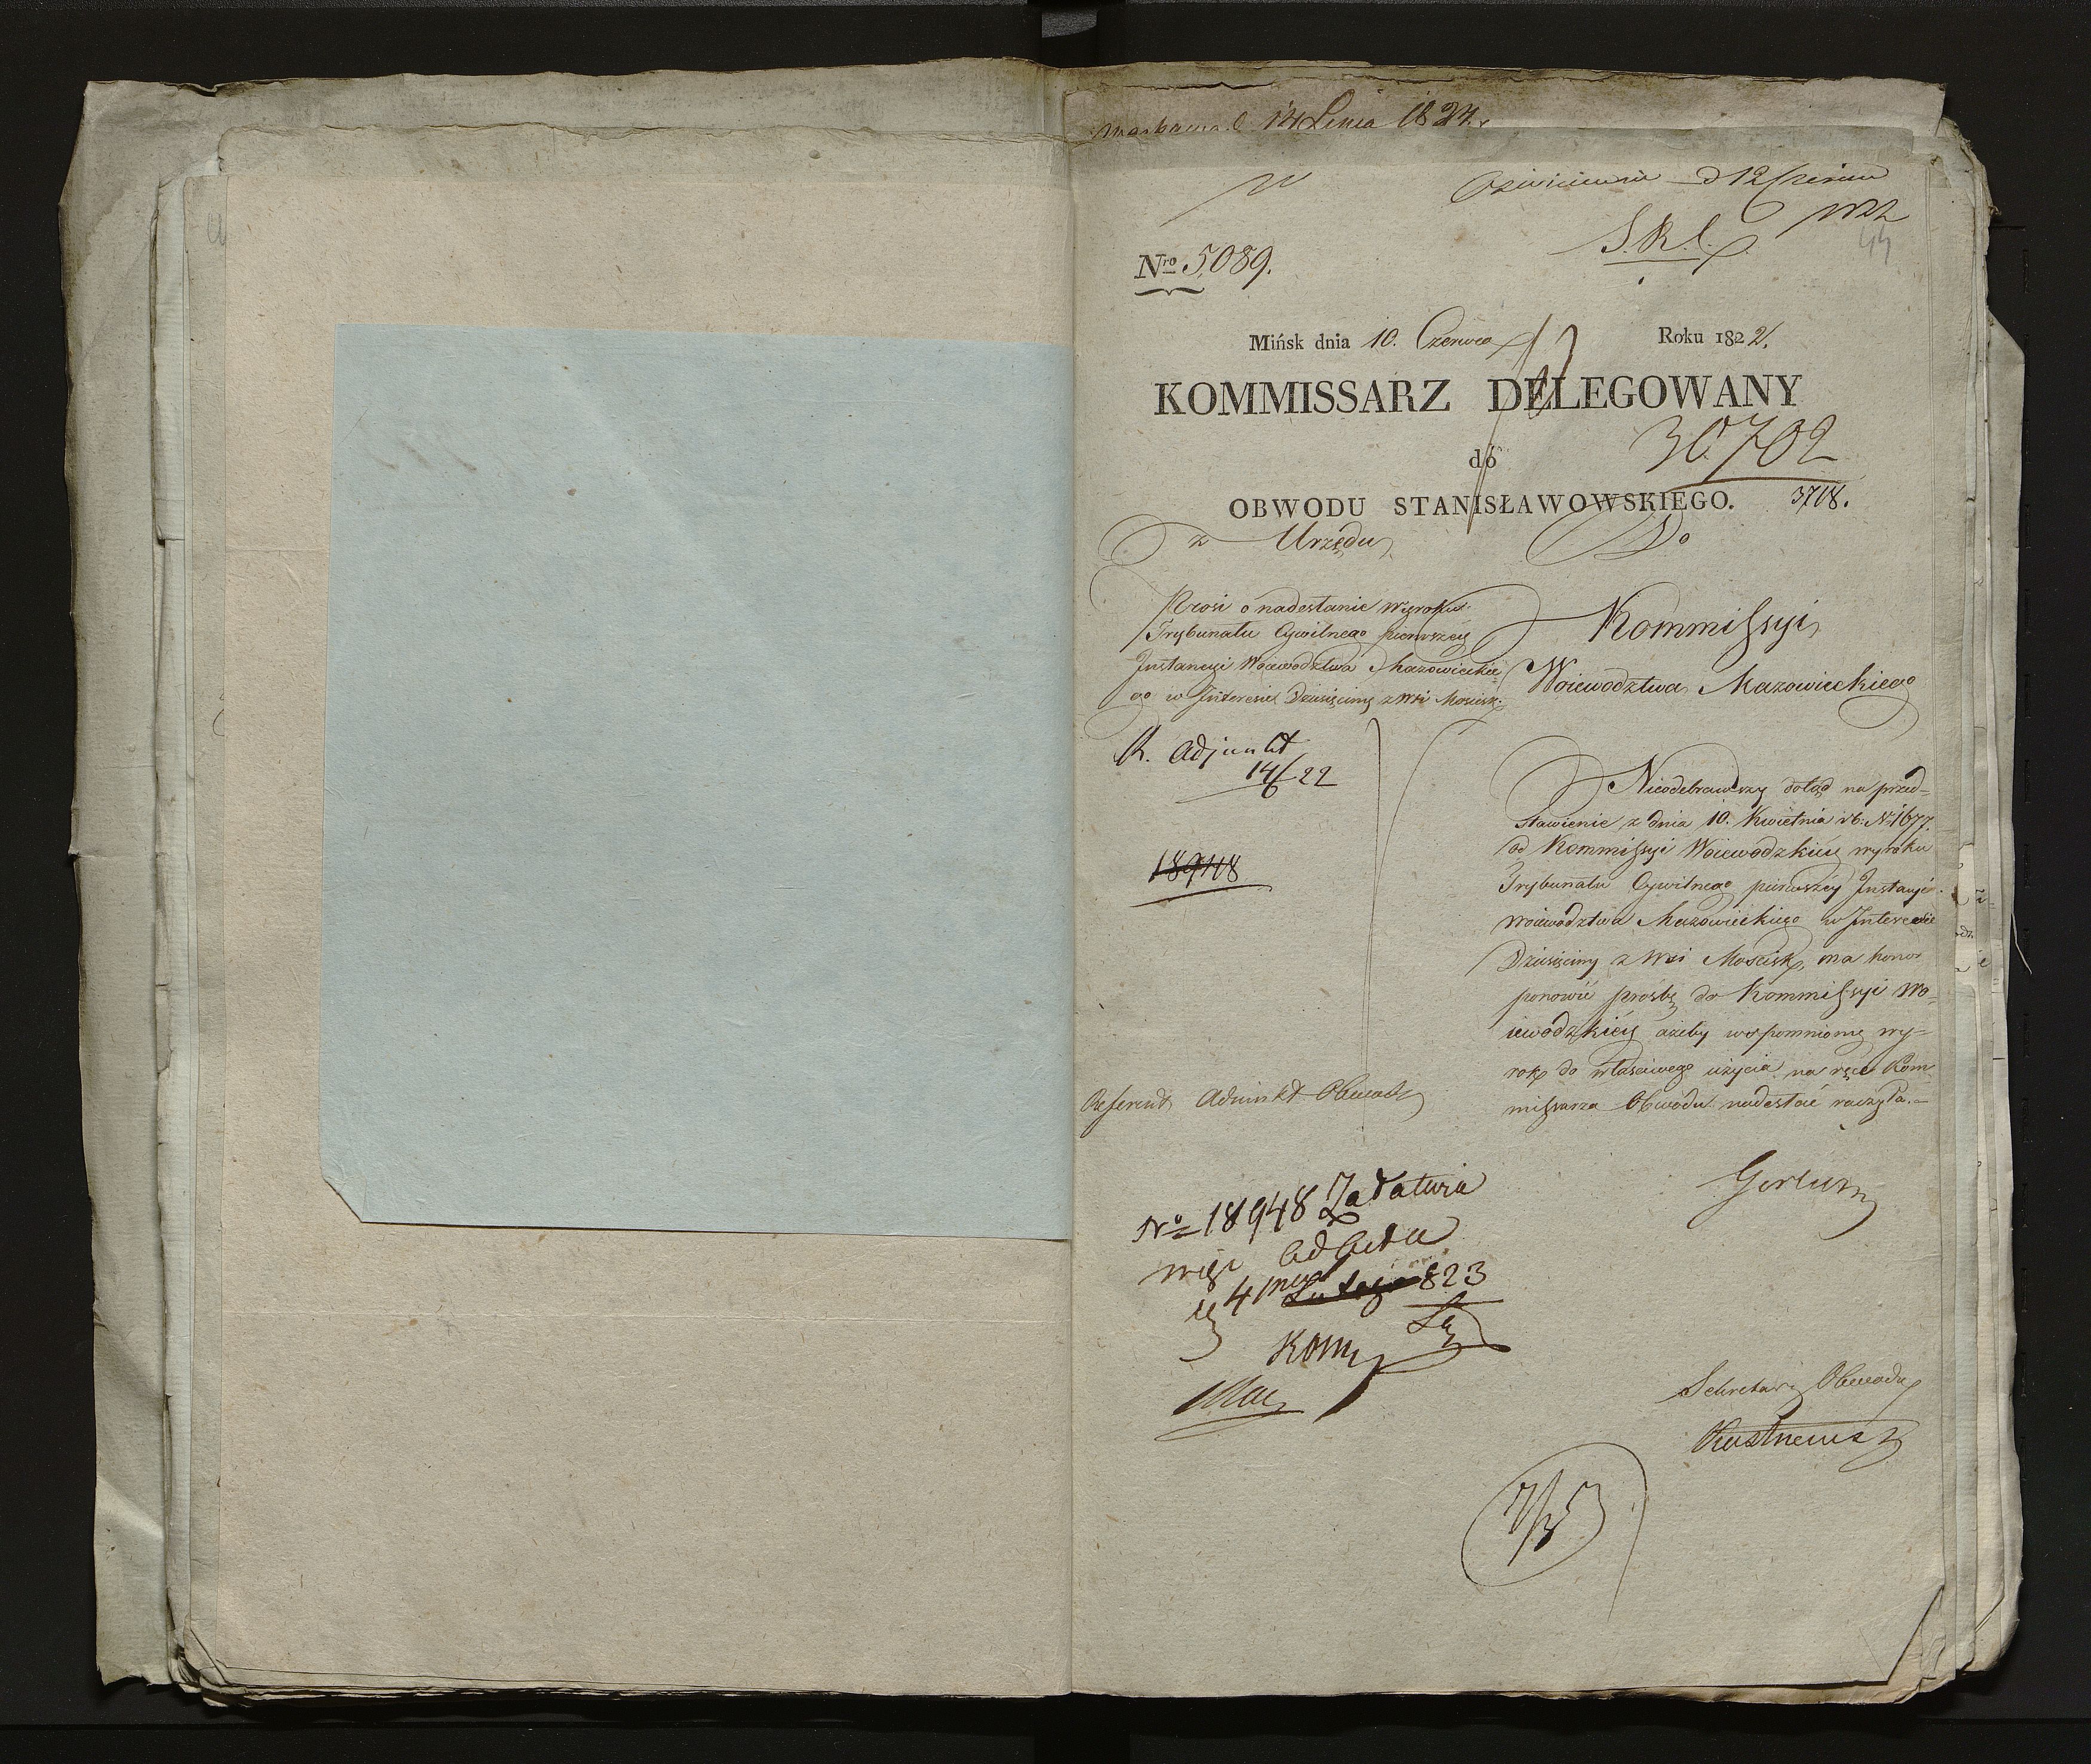 14 Lipca 1824.
d 12 Czerwca
S.K.L.
44
Nro 5089.
Mińsk dnia 10. Czerwca Roku 1822.
KOMMISSARZ DELEGOWANY
30702
do
OBWODU STANISŁAWOWSKIEGO.
3718.
z Urzędu
Do
Prosi o nadesłanie Wyroku
Trybunału Cywilnego pierwszéy
Instancyi Woiewodztwa Mazowieckie-
go w Interesie Dziesięciny z Wsi Moscisk.
Kommissyi
Woiewodztwa Mazowieckiego
R. Adjunkt
14/6 22
18948
Nieodebrawszy dotąd na przed-
stawienie z dnia 10. Kwietnia r.b. N. 1677.
od Kommissyi Woiewodzkiéy wyroku
Trybunału Cywilnego pierwszéy Instancyi
Woiewodztwa Mazowieckiego w Interesie
Dziesięciny z Wsi Moscisk, ma honor
ponowić prośbę do Kommissyi Wo-
iewodzkiéy ażeby wspomniony wy-
rok do właściwego użycia na ręce Kom-
missarza Obwodu nadesłać raczyła.-
Referent Adiunkt Obwodu
No 18948 Zadatura
więc ad acta
4 Lutego 823
Kom
Maz
Sekretarz Obwodu